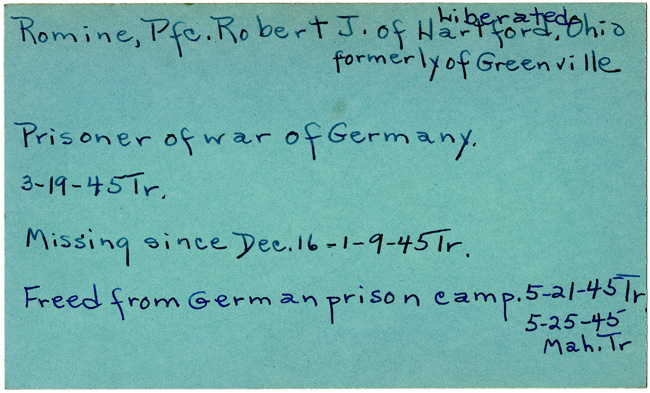 Liberated
Romine, Pfc. Robert J. of Hartford, Ohio
formerly of Greenville
Prisoner of war of Germany.
3-19-45 Tr.
Missing since Dec. 16 - 1-9-45 Tr.
Freed from German prison camp. 5-21-45 Tr
5-25-45
Mah. Tr